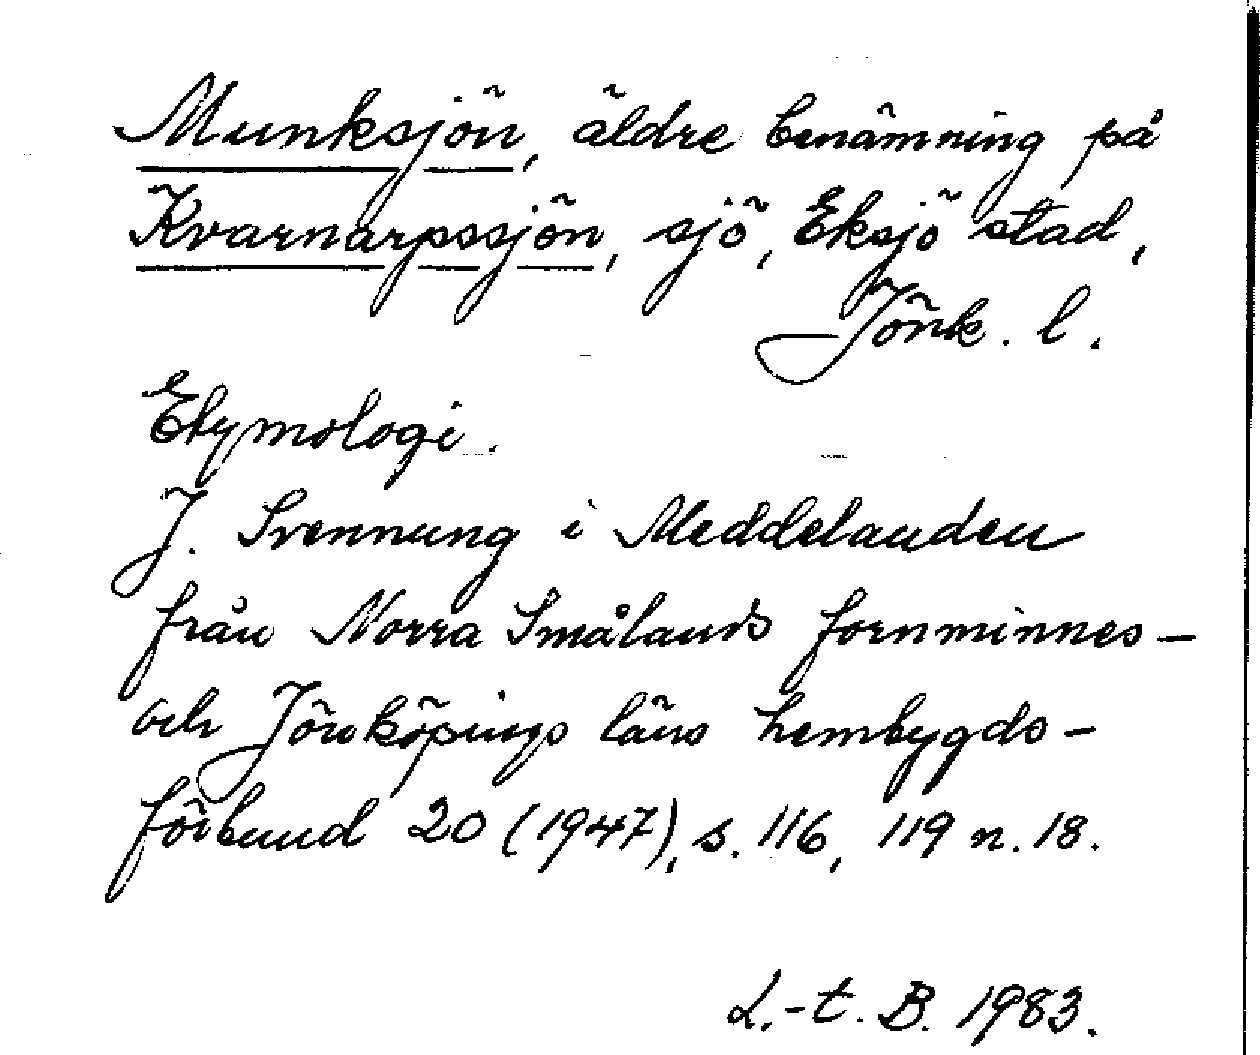 Munksjön, äldre benämning på
Kvarnarpssjön, sjö, Eksjö stad,
Jönk. l.
Etymologi.
J. Svennung i Meddelanden
från Norra Smålands fornminnes-
och Jönköpings läns hembygds-
förbund 20 (1947), s. 116, 119 n. 18.
L.-t. B. 1983.